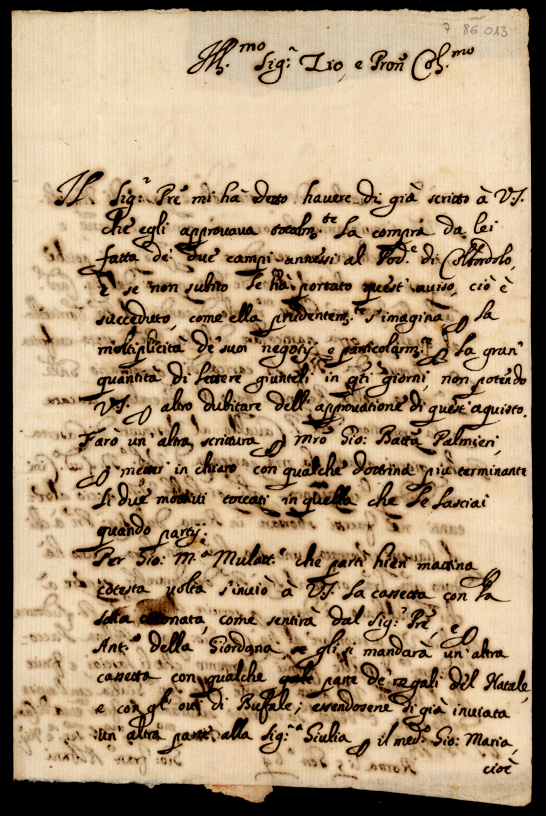 7 86 013
Ill.mo Sig.r Zio, e Pron Col.mo
Il Sig.r Pre mi hà detto havere di già scritto à V.S.
che egli approvava totalm.te la compra da lei
fatta de' due campi annessi al Pod.e di Colbordolo,
e se non subito le hà portato quest' auiso, ciò è
succeduto, come ella prudentem.te s'imagina la
moltiplicità de' suoi negotij, e particolarm.te la gran'
quantità di lettere giunteli in q.ti giorni, non potendo
V.S. altro dubitare dell' approvatione di quest' aquisto.
Farò un' altra scrittura mro Gio: Batta Palmieri,
metter in chiaro con qualche dottrina più terminante
li due motivi toccati in quella che le lasciai
quando partij.
Per Gio: M.a Mulatt.e che partì hieri mattina
cotesta volta s'inviò à V.S. la cassetta con la
solia, come sentirà dal Sig.r Pre, e
Ant.o della Giordana se gli si mandarà un' altra
cassetta con qualche parte de' regali del Natale,
e con gl' oui di Bufale; essendosene di già inviata
un' altra parte alla Sig.ra Giulia il med.o Gio: Maria,
cioè